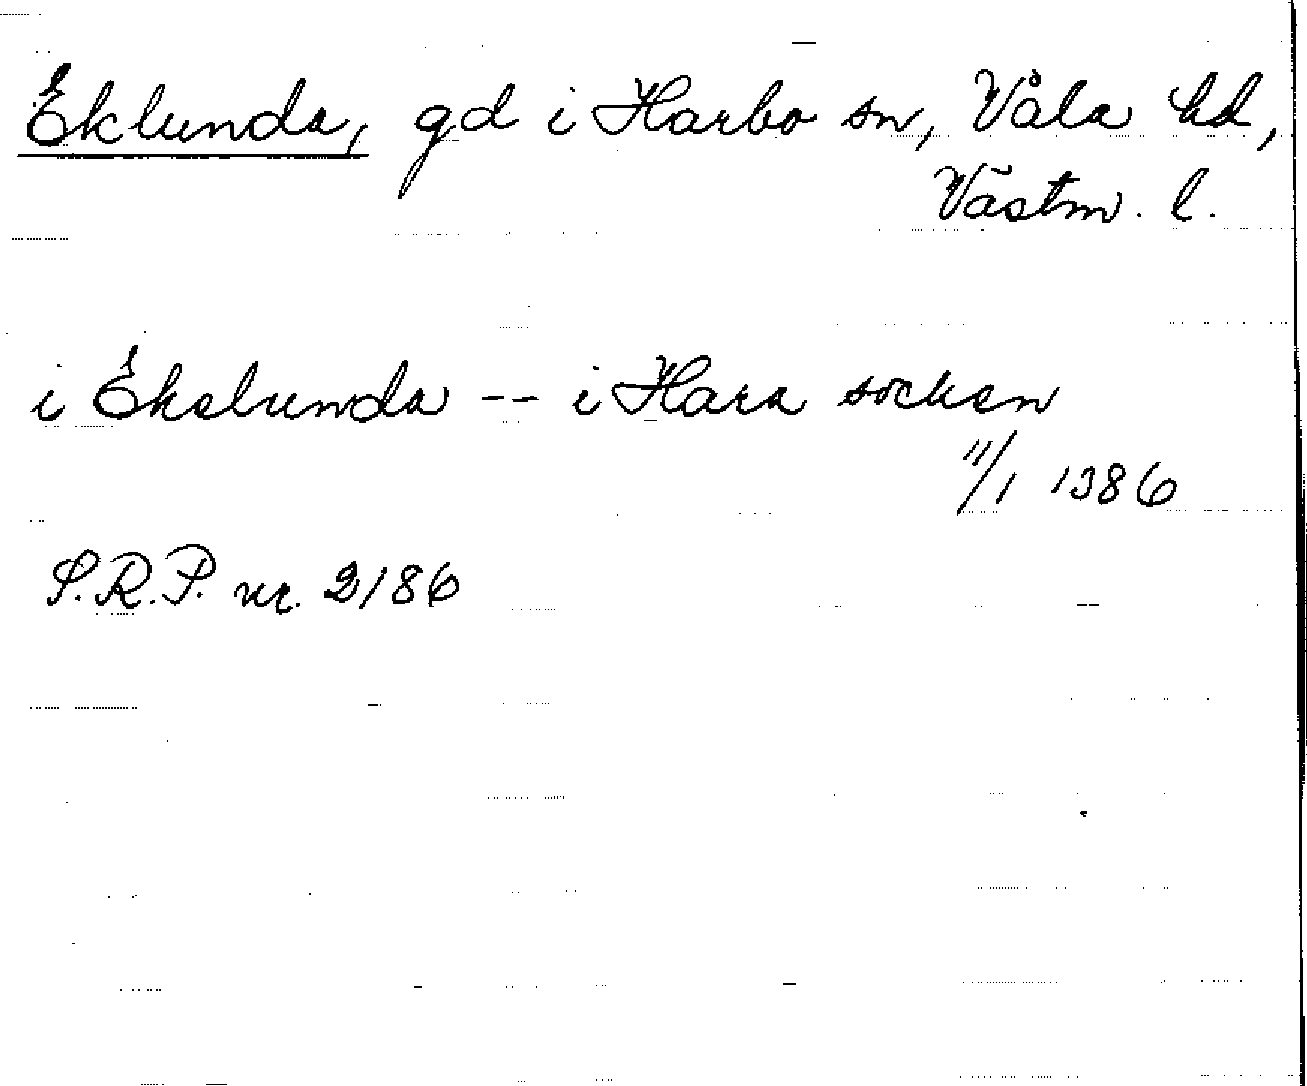 Eklunda, gd i Harbo sn, Våla hd,
Västm. l.
i Ekslunda -- i Hara socken
11/1 1386
S.R.P. nr. 2186